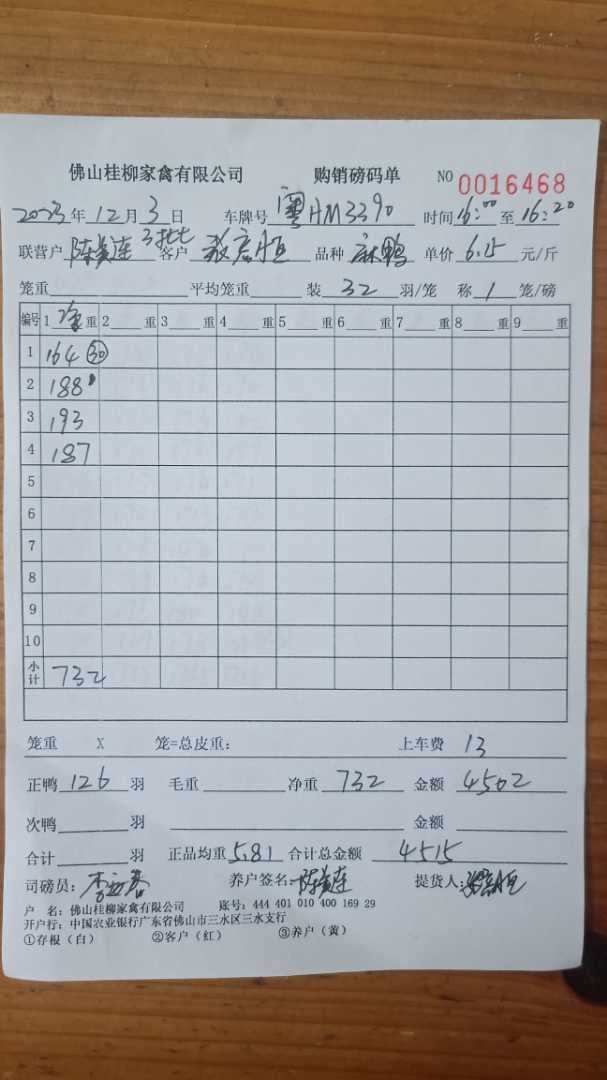 佛山桂柳家禽有限公司 购销磅码单 NO 0016468
2023年12月3日 车牌号 粤HM3390 时间 16:00 至 16:20
联营户 陈 连 3批 客户 恒 品种 麻鸭 单价 6.15 元/斤
笼重 平均笼重 装 32 羽/笼 称 1 笼/磅
编号 1 净 重 2 重 3 重 4 重 5 重 6 重 7 重 8 重 9 重
1 164 30
2 188
3 193
4 187
5
6
7
8
9
10
小计 732
笼重 X 笼=总皮重: 上车费 13
正鸭 126 羽 毛重 净重 732 金额 4502
次鸭 羽 金额
合计 羽 正品均重 5.81 合计总金额 4515
司磅员: 李 养户签名: 陈 连 提货人: 恒
户 名: 佛山桂柳家禽有限公司 账号: 444 401 010 400 169 29
开户行: 中国农业银行广东省佛山市三水区三水支行
①存根(白) ②客户(红) ③养户(黄)